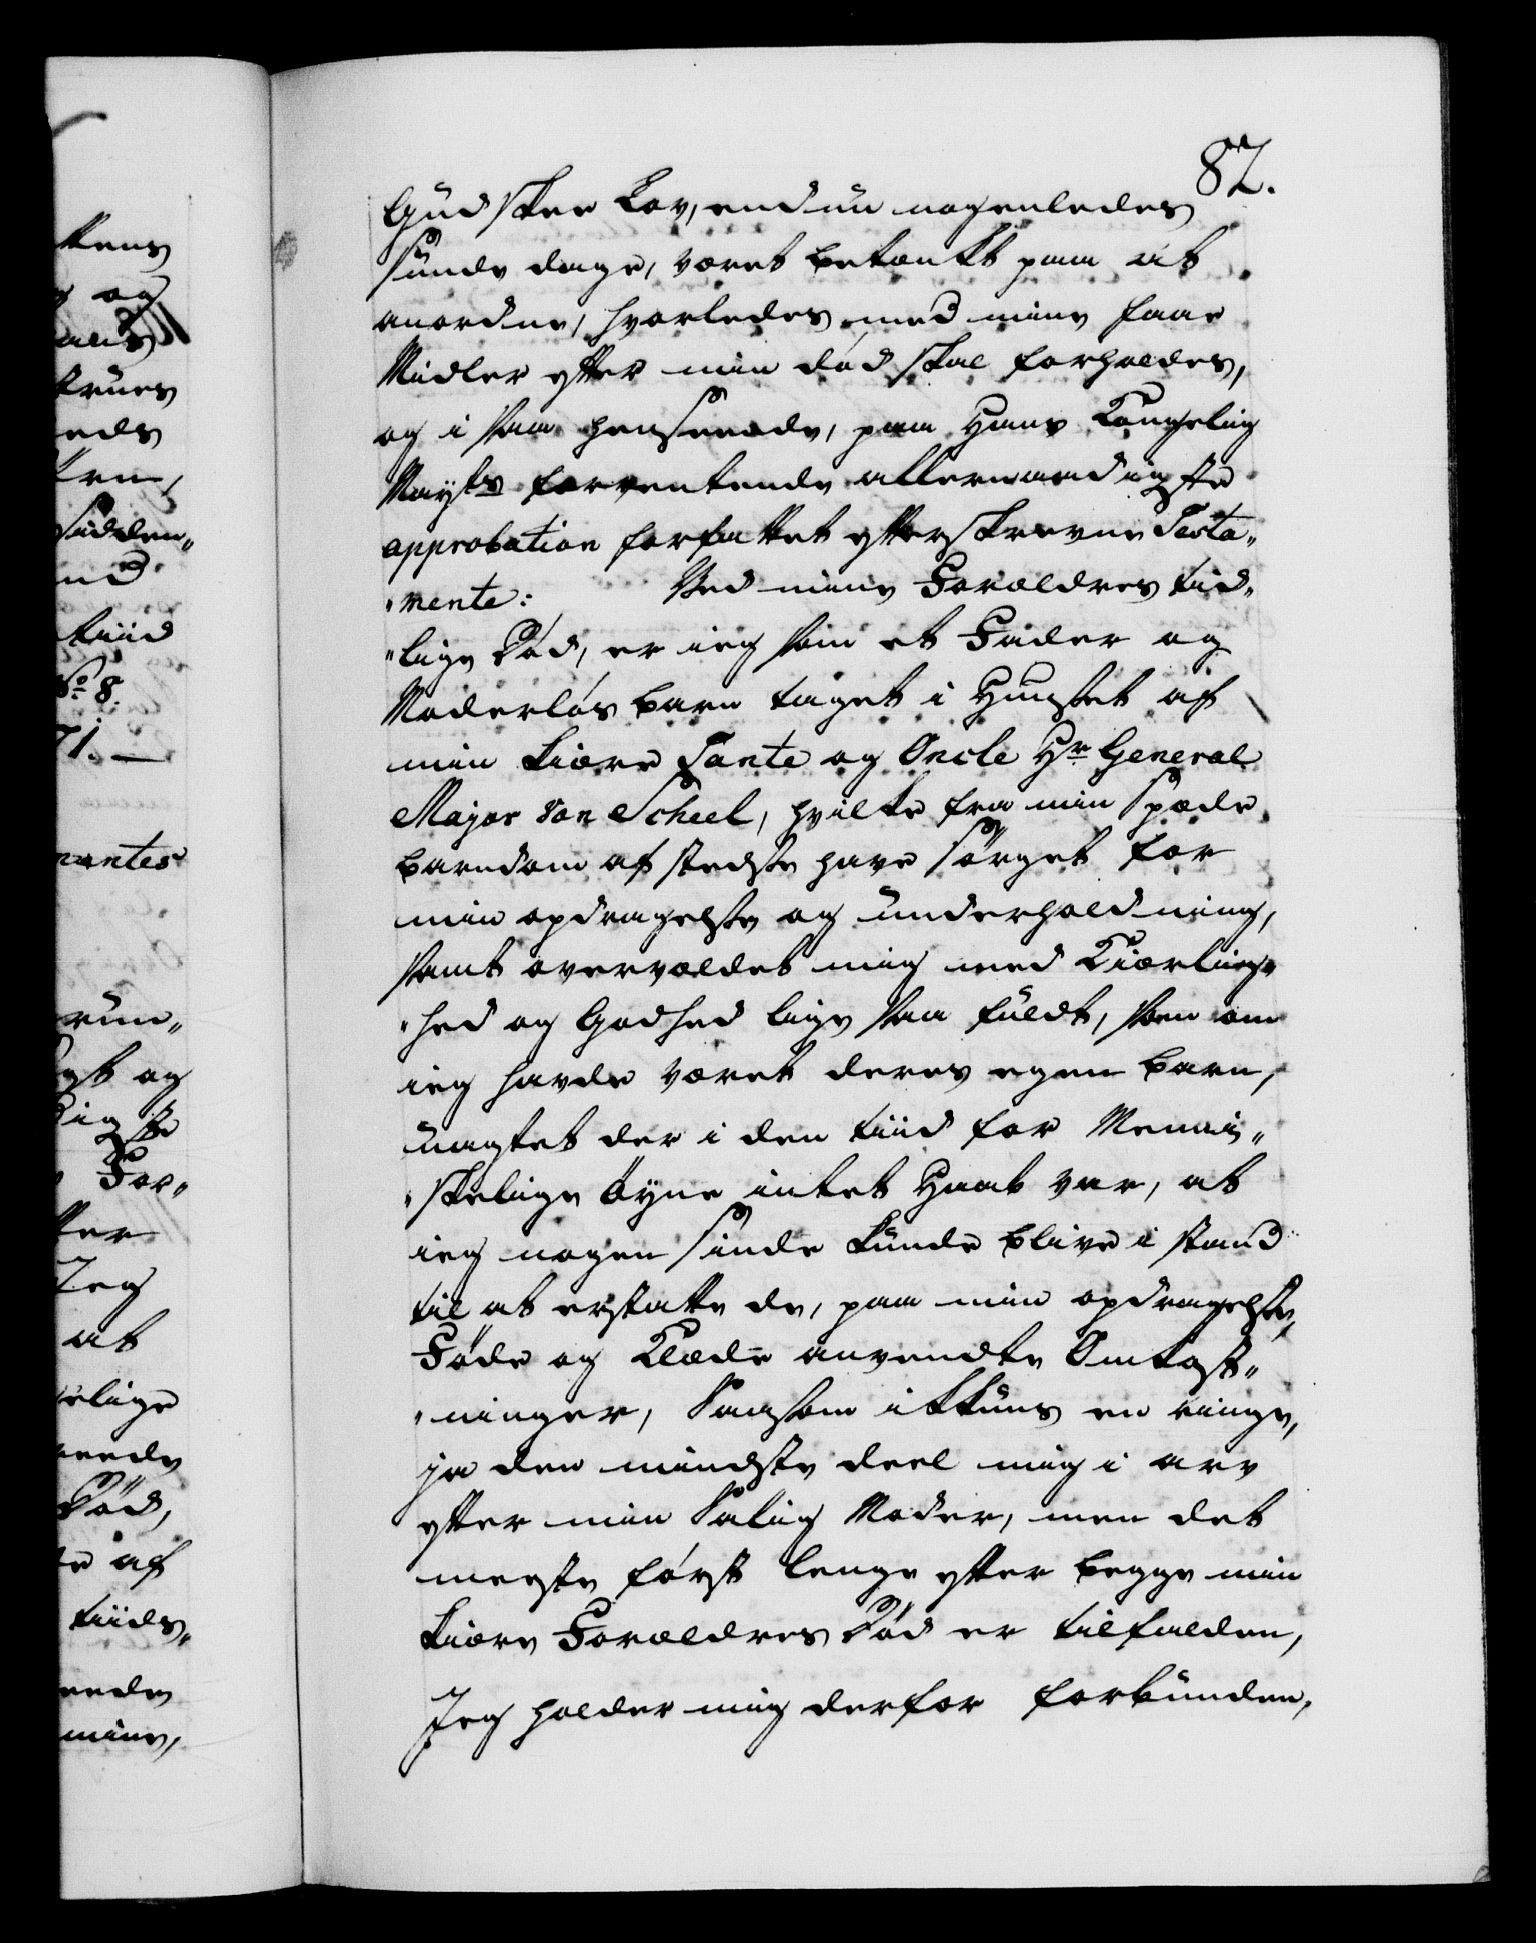 82.
Gud skee Lov, endnu nogenledes
sunde dage, været betænkt paa at
anordne, hvorledes med mine faae
Midler efter min død skal forholdes,
og i saa henseende, paa Hans Kongelig
Mayts forventende allernaadigste
approbation forfattet efterskrevne Testa„
„mente: Ved mine Forældres tid„
„lige Død, er ieg som et Fader og
Moderløs barn taget i Huuset af
min kiære Tante og Oncle Hr General
Major von Scheel, hvilke fra min Spæde
barndom af stedse have sørget for
min opdragelse og underholdning,
samt overvældet mig med Kiærlig„
„hed og Godhed lige saa fuldt, som om
ieg havde været deres egen barn,
uagtet der i den tiid for Menni„
„skelige Øyne intet Haab var, at
ieg nogen sinde kunde blive i stand
til at erstatte de, paa min opdragelse,
Føde og Klæde anvendte Omkost„
„ninger, Saasom ikkuns en ringe,
ja den mindste deel mig i arv
efter min Salig Moder, men det
meeste først lenge efter begge min
kiære Forældres Død er tilfalden,
Jeg holder mig derfor forbunden,